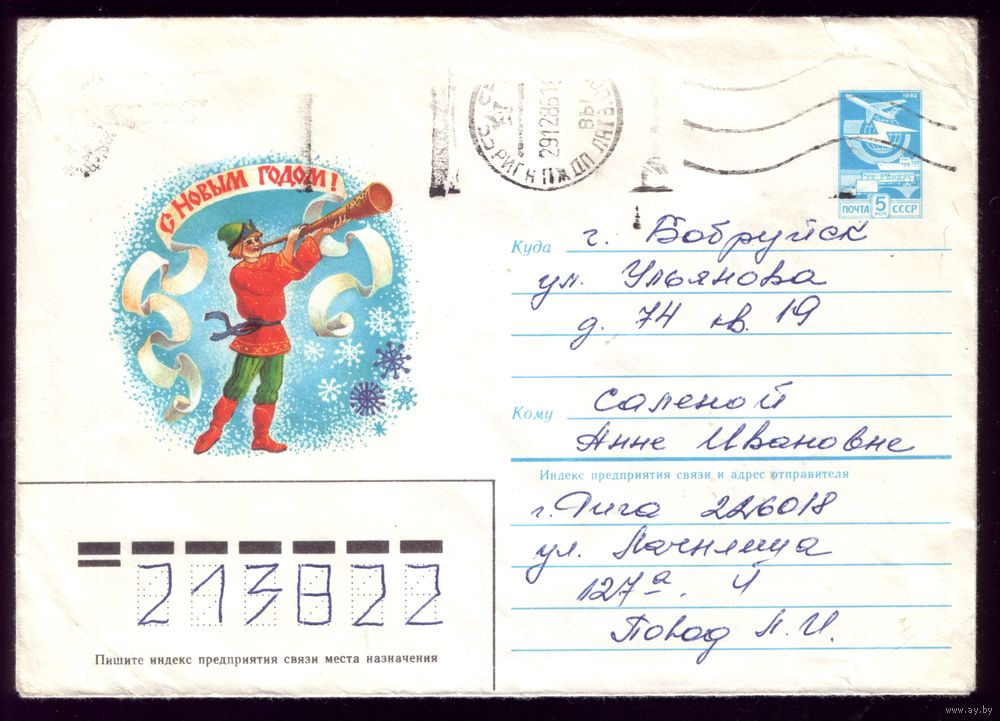 С НОВЫМ ГОДОМ!
29128618
РИГА ПЖДП ЛАТВ
1982
ПОЧТА 5 КОП СССР
Куда г. Бобруйск
ул. Ульянова
д. 74 кв. 19
Кому Саленой
Анне Ивановне
Индекс предприятия связи и адрес отправителя
г. Рига 226018
ул.
127а. 4
Повод Л. И.
213822
Пишите индекс предприятия связи места назначения
www.ay.by